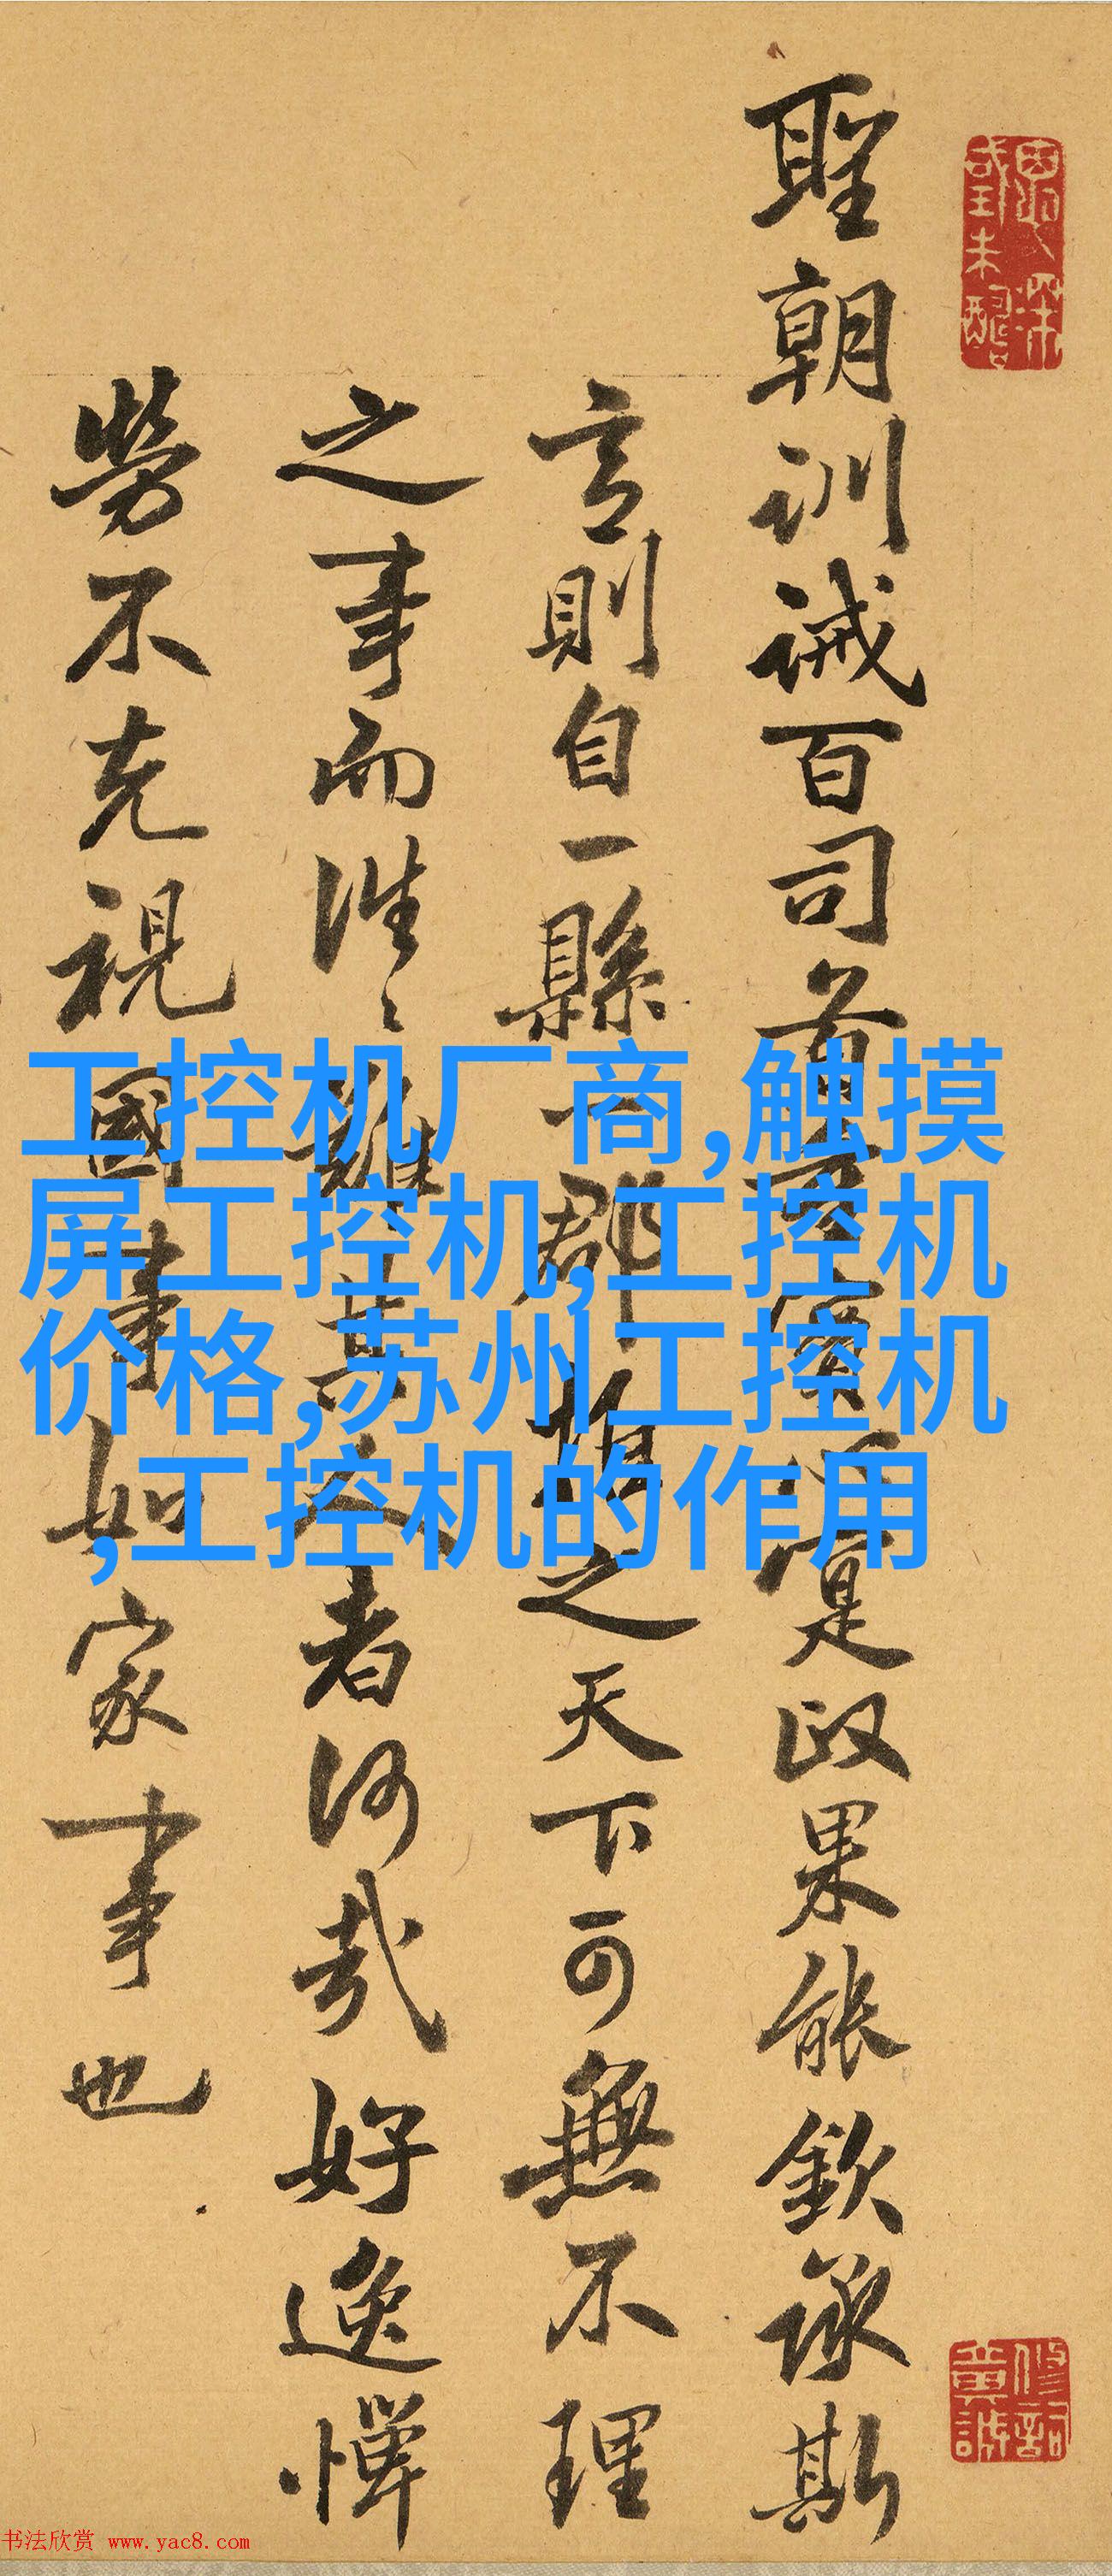 聖朝訓誡百司首心寔政果能欽承斯
言則自一縣一郡推之天下可無不理
之事而往々難其人者何哉好逸憚
勞不克視國事如家事也
工控机厂商,触摸
屏工控机,工控机
价格,苏州工控机
,工控机的作用
书法欣赏 www.yac8.com